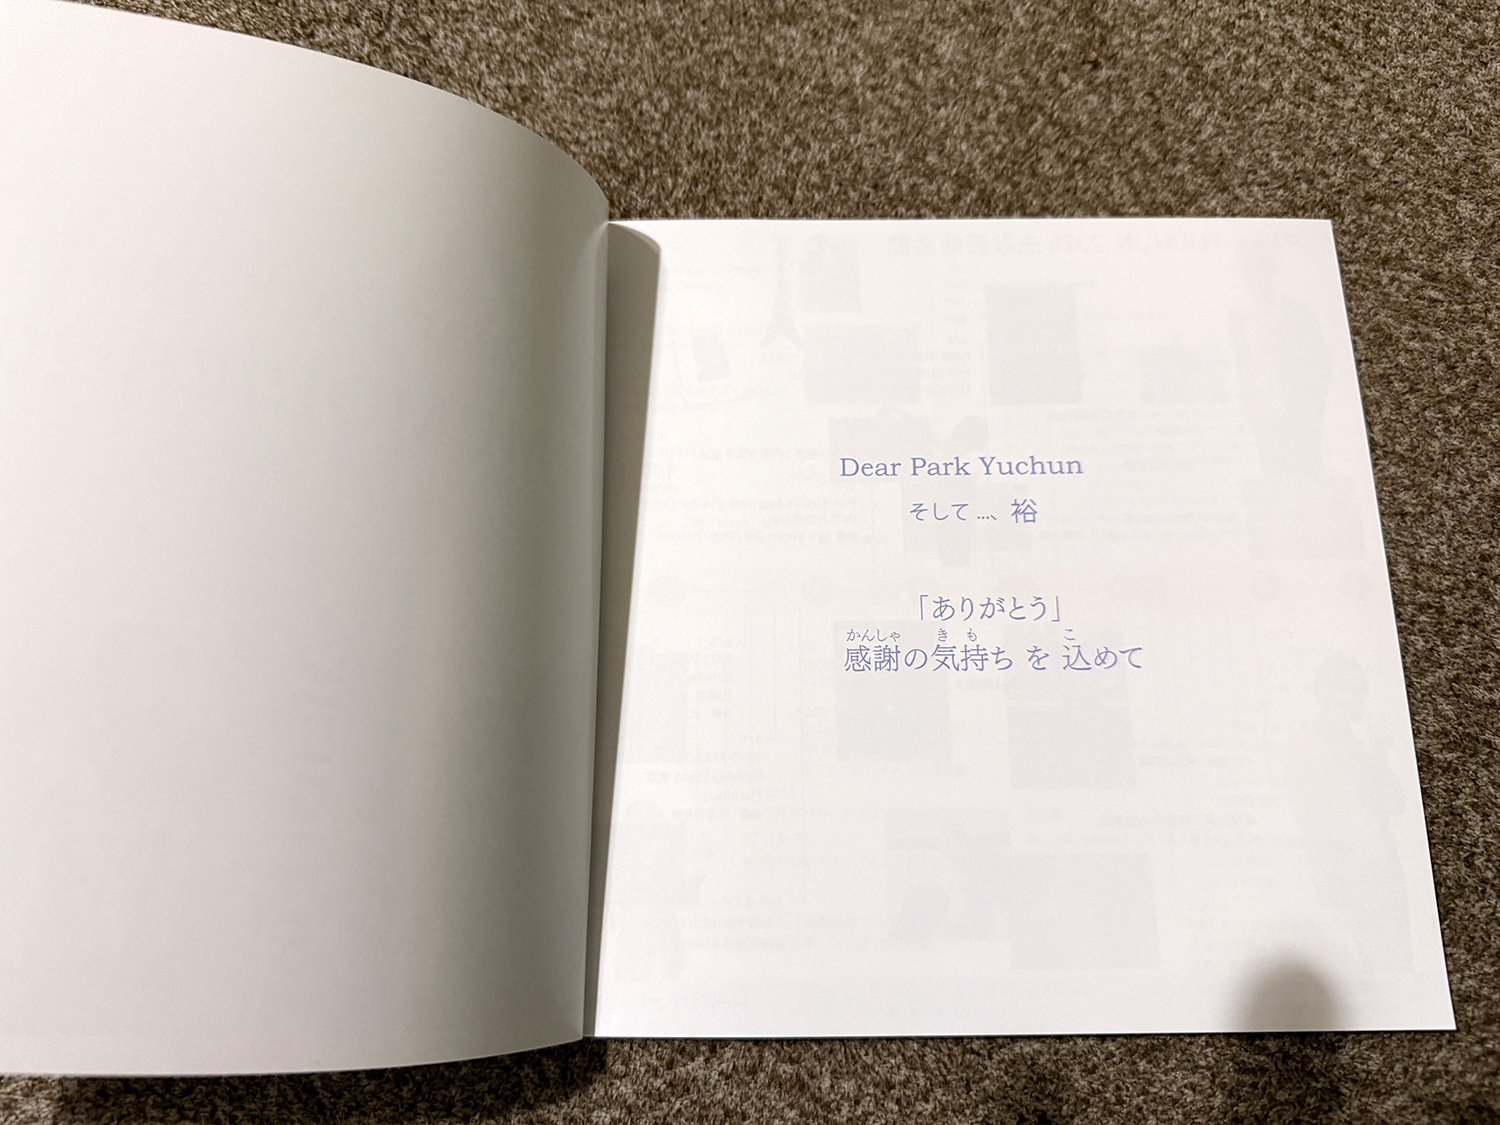 Dear Park Yuchun
そして …、裕
「ありがとう」
かんしゃ き も こ
感謝の気持ち を 込めて